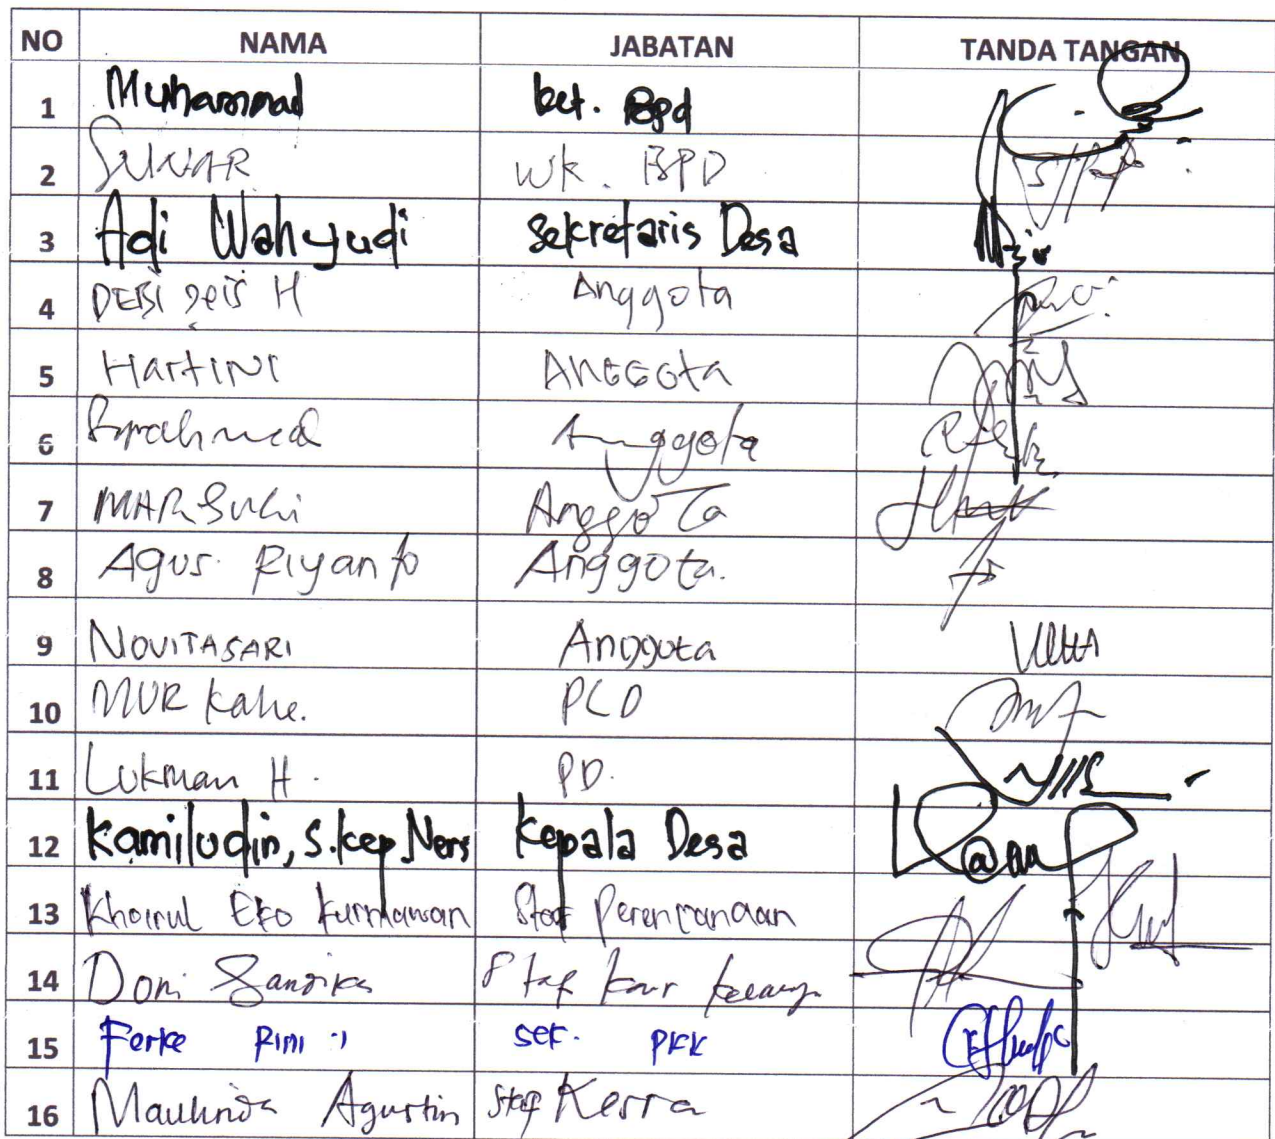 NO NAMA JABATAN TANDA TANGAN
1 Muhammad ket. Bpd
2 SUNAR WK. BPD
3 Adi Wahyudi Sekretaris Desa
4 DEBI H Anggota
5 HartiNi ANGGOta
6 Anggota
7 MARSuki Anggota
8 Agus. Riyanto Anggota.
9 NOVITASARI Anggota
10 NUR PLD
11 Lukman H. PD.
12 Kamiludin, S.kep,Ners Kepala Desa
13 Khoirul Eko Kurniawan Staf Perencanaan
14 Doni Sandika Staf kaur
15 Ferke sek. PKK
16 Maulinda Agustin Staf Kesra